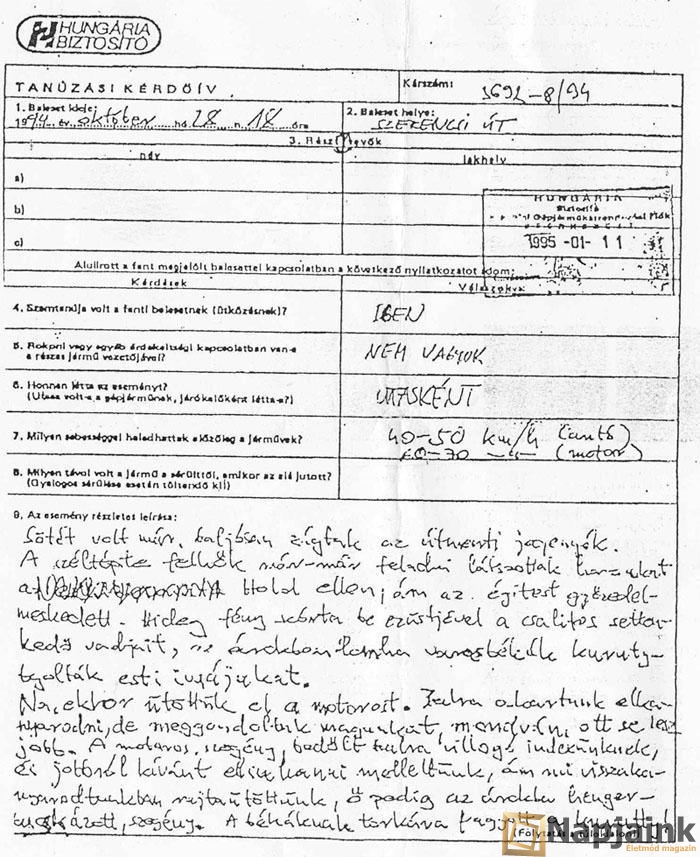 HUNGÁRIA
BIZTOSÍTÓ
TANÚZÁSI KÉRDŐÍV
Kárszám: 3692-8/94
1. Baleset ideje:
1994 év október hó 28 n. 18 óra
2. Baleset helye:
SZERENCSI ÚT
3. Résztvevők
név
lakhely
a)
b)
c)
HUNGÁRIA
Biztosító
1995 -01- 11
Alulírott a fent megjelölt balesettel kapcsolatban a következő nyilatkozatot adom:
Kérdések
Válaszok
4. Szemtanúja volt a fenti balesetnek (ütközésnek)?
IGEN
5. Rokoni vagy egyéb érdekeltségi kapcsolatban van-e
a részes jármű vezetőjével?
NEM VAGYOK
6. Honnan látta az eseményt?
(Utasa volt-e a gépjárműnek, járókelőként látta-e?)
UTASKÉNT
7. Milyen sebességgel haladhattak előzőleg a járművek?
40-50 km/h (autó)
60-70 -"- (motor)
8. Milyen távol volt a jármű a sérülttől, amikor az elé jutott?
(Gyalogos sérülése esetén töltendő ki!)
9. Az esemény részletes leírása:
Sötét volt már, baljósan zúgtak az útmenti jegenyék.
A széltépte felhők már-már feladni látszottak harcukat
a Hold ellen, ám az égitest győzedel-
meskedett. Hideg fény szórta be ezüstjével a csalitos setten-
kedő vadjait, az árokban lomha varasbékák kuruty-
tyolták esti imájukat.
Na, ekkor ütöttük el a motorost. Balra akartunk elka-
nyarodni, de meggondoltuk magunkat, mondván, ott se lesz
jobb. A motoros, szegény, bedőlt balra villogó indexünknek,
és jobbról kívánt elsuhanni mellettünk, ám mi visszaka-
nyarodtunkban rajtaütöttünk, ő pedig az árokba henger-
buckázott, szegény. A békáknak torkára fagyott a kuruttty!
(Folytatás a túloldalon!)
Napjaink
Életmód magazin